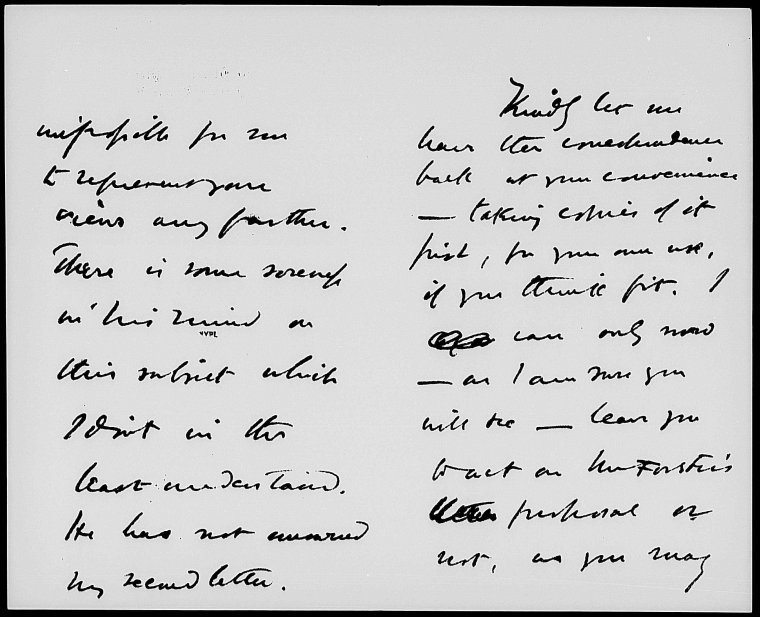 impossible for me
to represent your
views any farther.
There is some soreness
in his mind on
NYPL
this subject which
I don't in the
least understand.
He has not answered
my second letter.
Kindly let me
have the correspondence
back at your convenience
— taking copies of it
first, for your own use,
if you think fit. I
can only now
— as I am sure you
will see — leave you
to act on Mr Forster's
proposal or
not, as you may